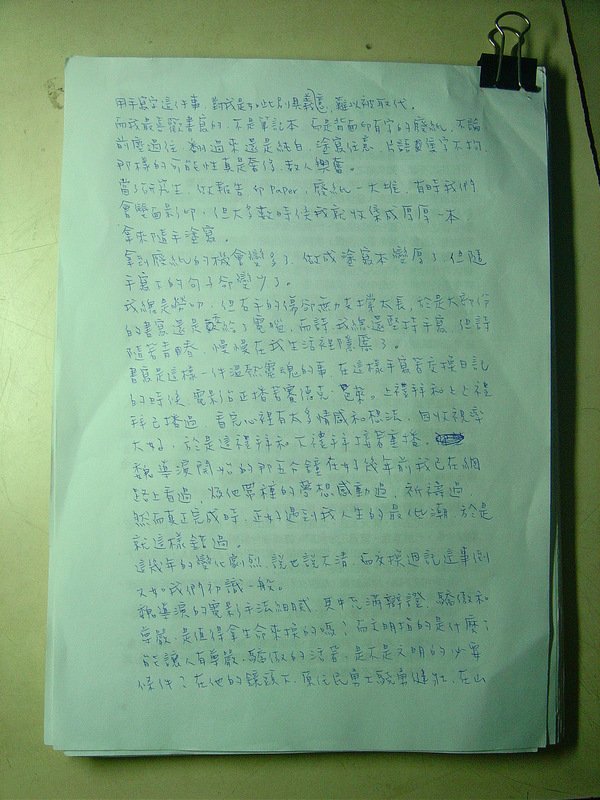 用手寫字這件事，對我是如此別具義意，難以被取代。
而我最喜歡書寫的，不是筆記本，而是背面印有字的廢紙，不論
前塵過往，翻過來還是純白，塗寫任意，片語隻字不拘，
那樣的可能性真是奢侈，教人興奮。
當了研究生，做報告印paper，廢紙一大堆，有時我們
會雙面影印，但大多數時侯我就收集成厚厚一本，
拿來隨手塗寫。
拿到廢紙的機會變多了，做成塗寫本變厚了，但隨
手寫下的句子卻變少了。
我總是勞叨，但右手的傷卻無力支撐太長，於是大部份
的書寫還是給了電腦，而詩，我總還堅持手寫，但詩
隨著青春，慢慢在我生活裡隱匿了。
書寫是這樣一件溫熱靈魂的事，在這樣手寫著交換日記
的時侯，電影台正播著賽德克·巴萊。上禮拜和上上禮
拜已播過，看完心裡有太多情感和想法，因收視率
太好，於是這禮拜和下禮拜接著重播。
魏導演開始的那五分鐘在好幾年前我已在網
路上看過，為他那種的夢想感動過，祈禱過，
然而真正完成時，正好遇到我人生的最低潮，於是
就這樣錯過。
這幾年的變化劇烈，說也說不清，而交換週記這事倒
又如我們初識一般。
魏導演的電影手法細膩，其中充滿辯證，驕傲和
尊嚴，是值得拿生命來換的嗎？而文明指的是什麼？
能讓人有尊嚴、驕傲的活著，是不是文明的必要
條件？在他的鏡頭下，原住民勇士驍勇健壯，在山